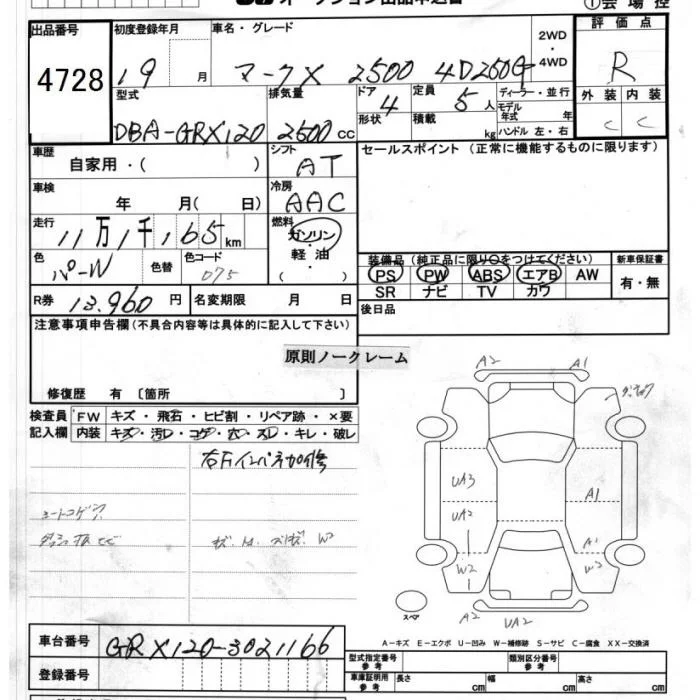 オークション出品申込書
①会場控
出品番号 4728
初度登録年月 19 月
車名・グレード マークX 2500 4D250G
2WD・4WD
評価点 R
型式 DBA-GRX120
排気量 2500 cc
ドア形状 4
定員 5人
積載 kg
ディーラー・並行
モデル年式 年
ハンドル 左・右
外装 C 内装 C
車歴 自家用・( )
シフト AT
セールスポイント(正常に機能するものに限ります)
車検 年 月( 日)
冷房 AAC
走行 11万1千165km
燃料 ガソリン・軽油・( )
色 パーW 色替 色コード 075
装備品(純正品に限り○をつけてください) 新車保証書
PS PW ABS エアB AW 有・無
SR ナビ TV カワ
R券 13,960円 名変期限 月 日
後日品
注意事項申告欄(不具合内容等は具体的に記入して下さい)
原則ノークレーム
修復歴 有〔箇所 〕
検査員記入欄 FW キズ・飛石・ヒビ割・リペア跡・×要
内装 キズ・汚レ・コゲ・穴・スレ・キレ・破レ
A2 A1
右Fインパネ加修
シートコゲ穴
UA3 A1
UA2 A1
W2 W2
スペア
A2 UA2
A-キズ E-エクボ U-凹み W-補修跡 S-サビ C-腐食 XX-交換済
車台番号 GRX120-3021166
型式指定番号 参考 類別区分番号 参考
登録番号
車庫証明用参考 長さ cm 幅 cm 高さ cm